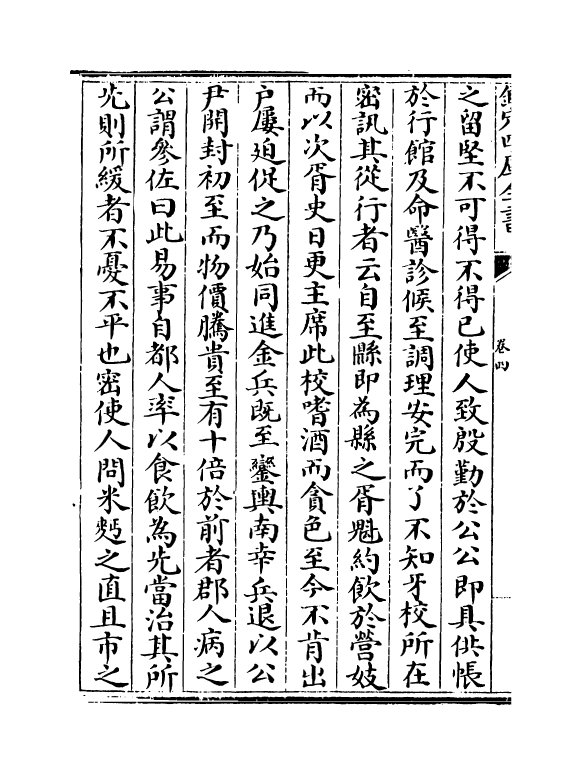 欽定四庫全書
卷四
之留堅不可得不得已使人致殷勤於公公即具供帳
於行館及命醫診候至調理安完而了不知牙校所在
密訊其從行者云自至縣即為縣之胥魁約飲於營妓
而以次胥吏日更主席此校嗜酒而貪色至今不肯出
户屢迫促之乃始同進金兵既至鑾輿南幸兵退以公
尹開封初至而物價騰貴至有十倍於前者郡人病之
公謂參佐曰此易事自都人率以食飲為先當治其所
先則所緩者不憂不平也密使人問米麪之直且市之